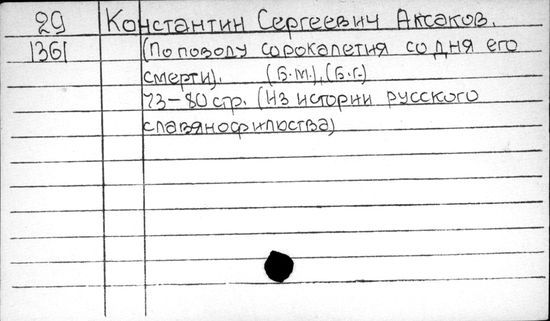 29 Константин Сергеевич Аксаков.
1361 (По поводу сорокалетия со дня его
смерти). (Б.М.),(Б.Г.)
73-80 стр. (Из истории русского
славянофильства)